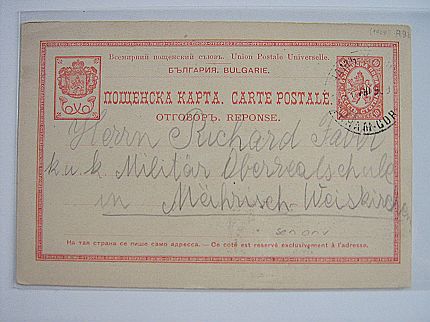 Всемирный пощенский съюзъ. Union Postale Universelle.
БЪЛГАРИЯ. BULGARIE.
ПОЩЕНСКА КАРТА. CARTE POSTALE.
ОТГОВОРЪ. REPONSE.
Herrn Richard
k. u. k. Militär Oberrealschule
in Mährisch-Weisskirchen
На тая страна се пише само адресса. — Ce coté est reservé exclusivement à l'adresse.